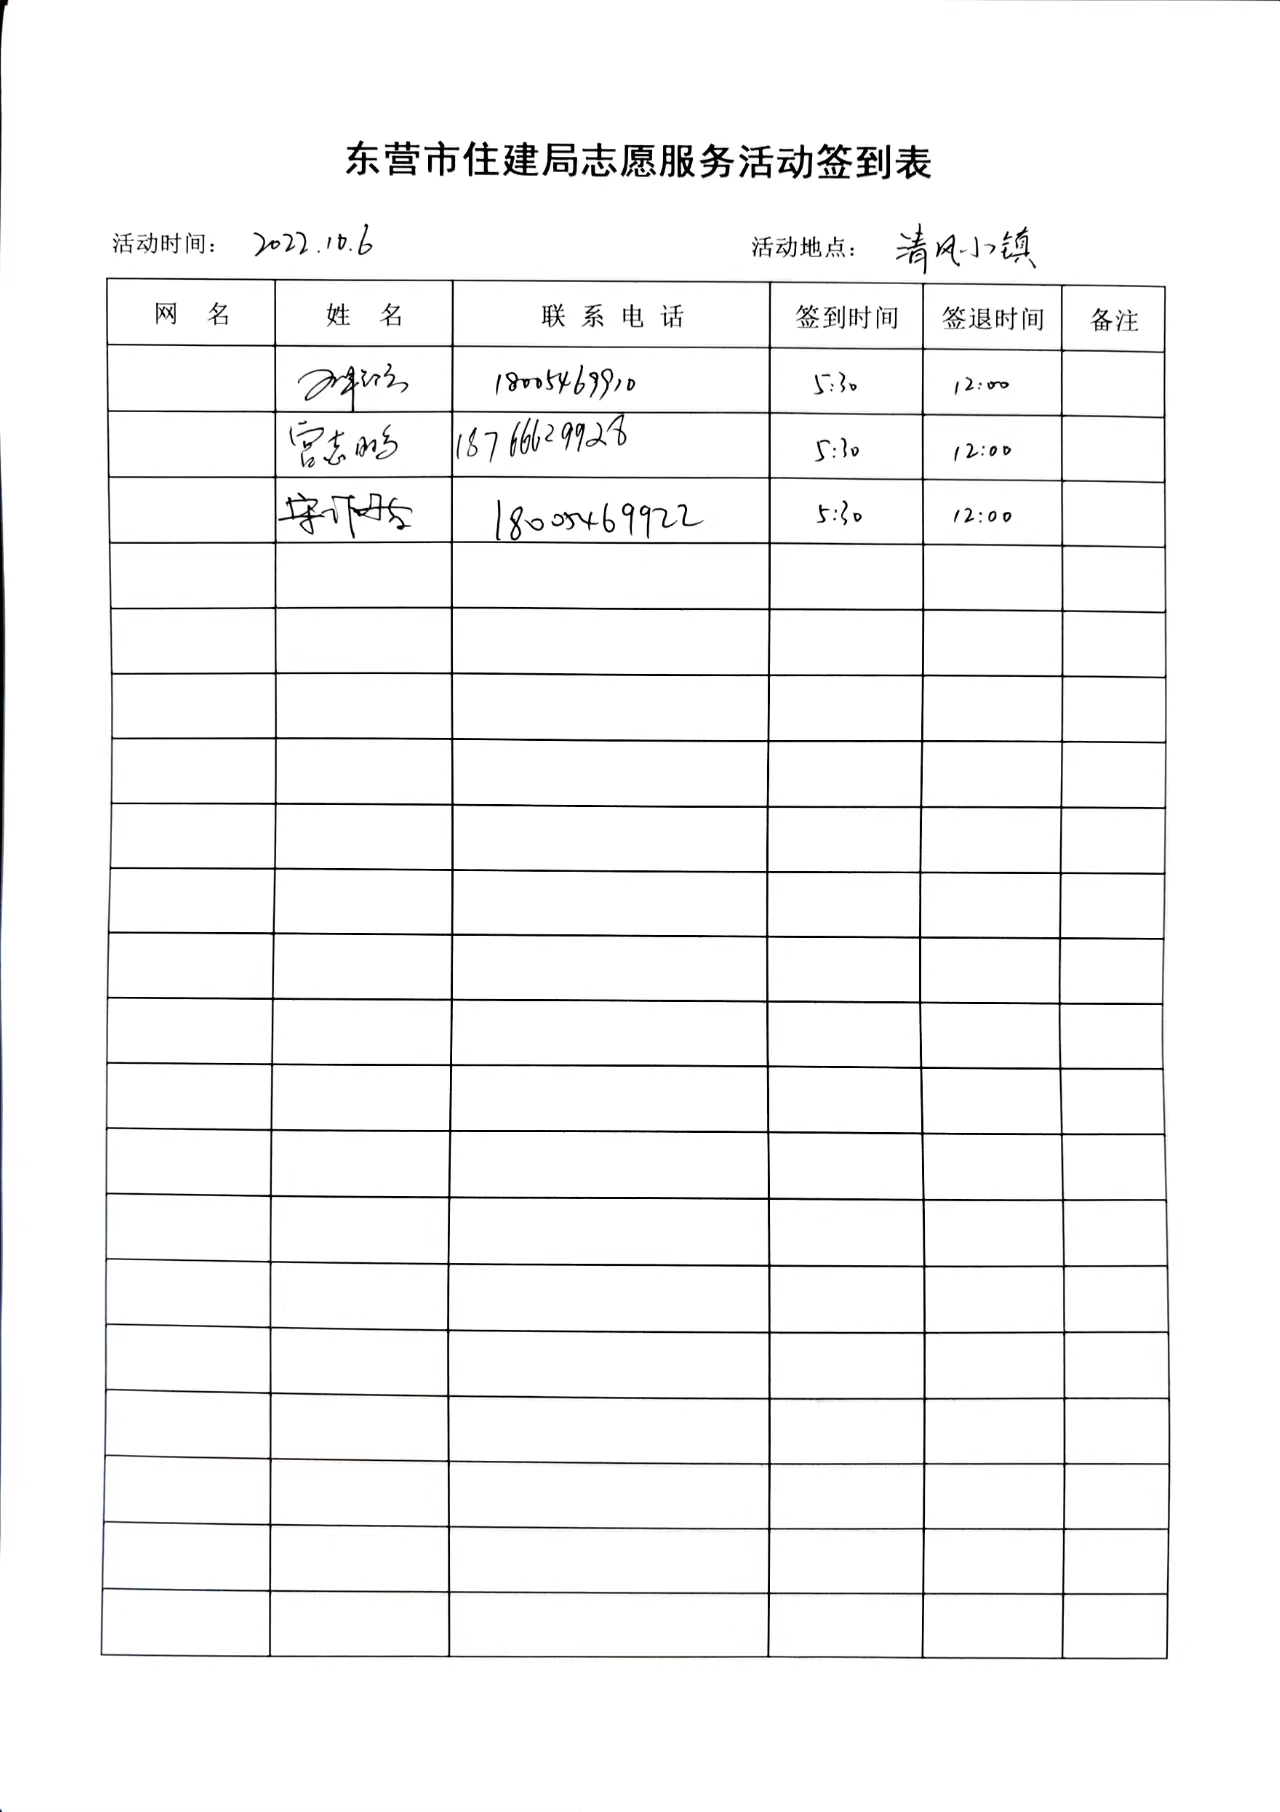 东营市住建局志愿服务活动签到表
活动时间： 2022.10.6 活动地点： 清风小镇
网 名 姓 名 联系电话 签到时间 签退时间 备注
18005469910 5:30 12:00
宫志鹏 18766629928 5:30 12:00
18005469922 5:30 12:00